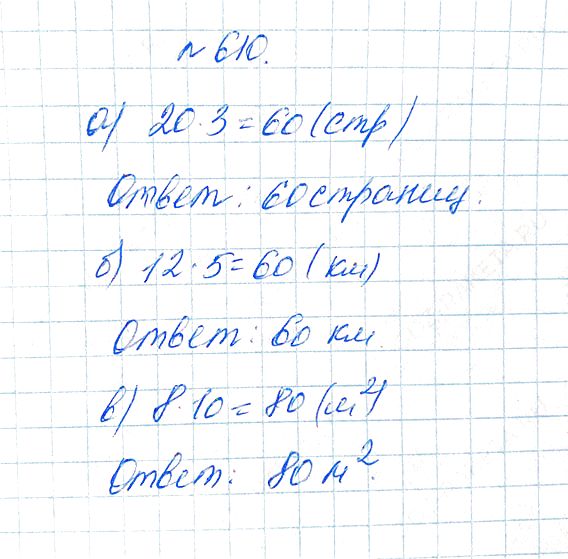 № 610.
а) 20·3=60 (стр)
Ответ: 60 страниц.
б) 12·5=60 (км)
Ответ: 60 км.
в) 8·10=80 (м²)
Ответ: 80 м².